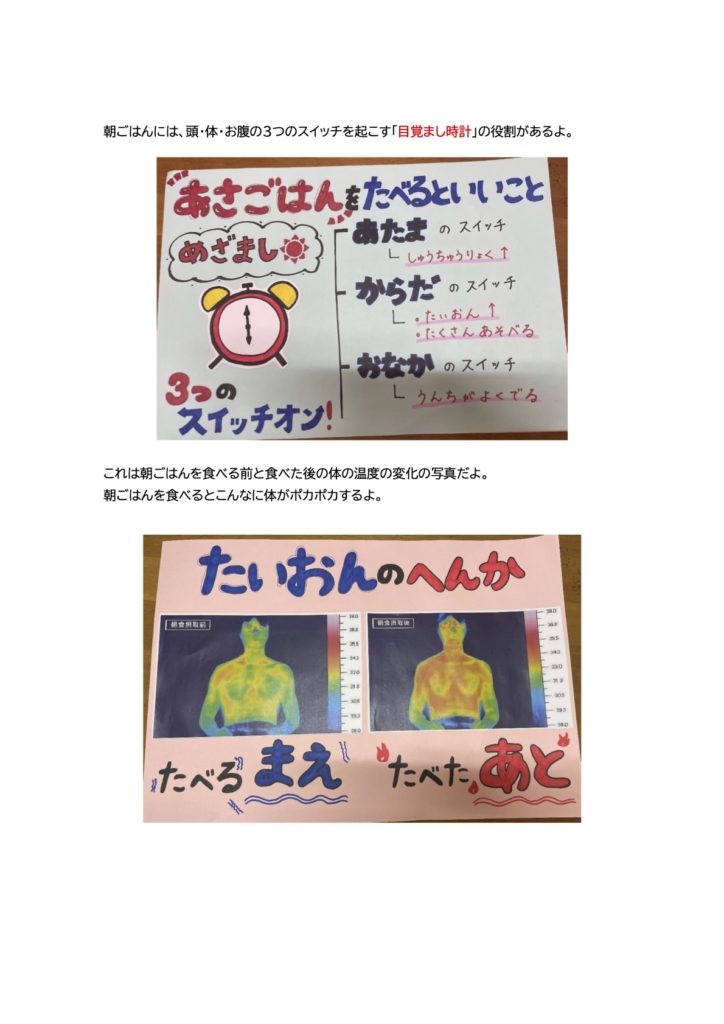 朝ごはんには、頭・体・お腹の3つのスイッチを起こす「目覚まし時計」の役割があるよ。
あさごはんをたべるといいこと
めざまし
3つの
スイッチオン!
あたまのスイッチ
しゅうちゅうりょく↑
からだのスイッチ
・たいおん↑
・たくさんあそべる
おなかのスイッチ
うんちがよくでる
これは朝ごはんを食べる前と食べた後の体の温度の変化の写真だよ。
朝ごはんを食べるとこんなに体がポカポカするよ。
たいおんのへんか
朝食摂取前
朝食摂取後
たべるまえ
たべたあと